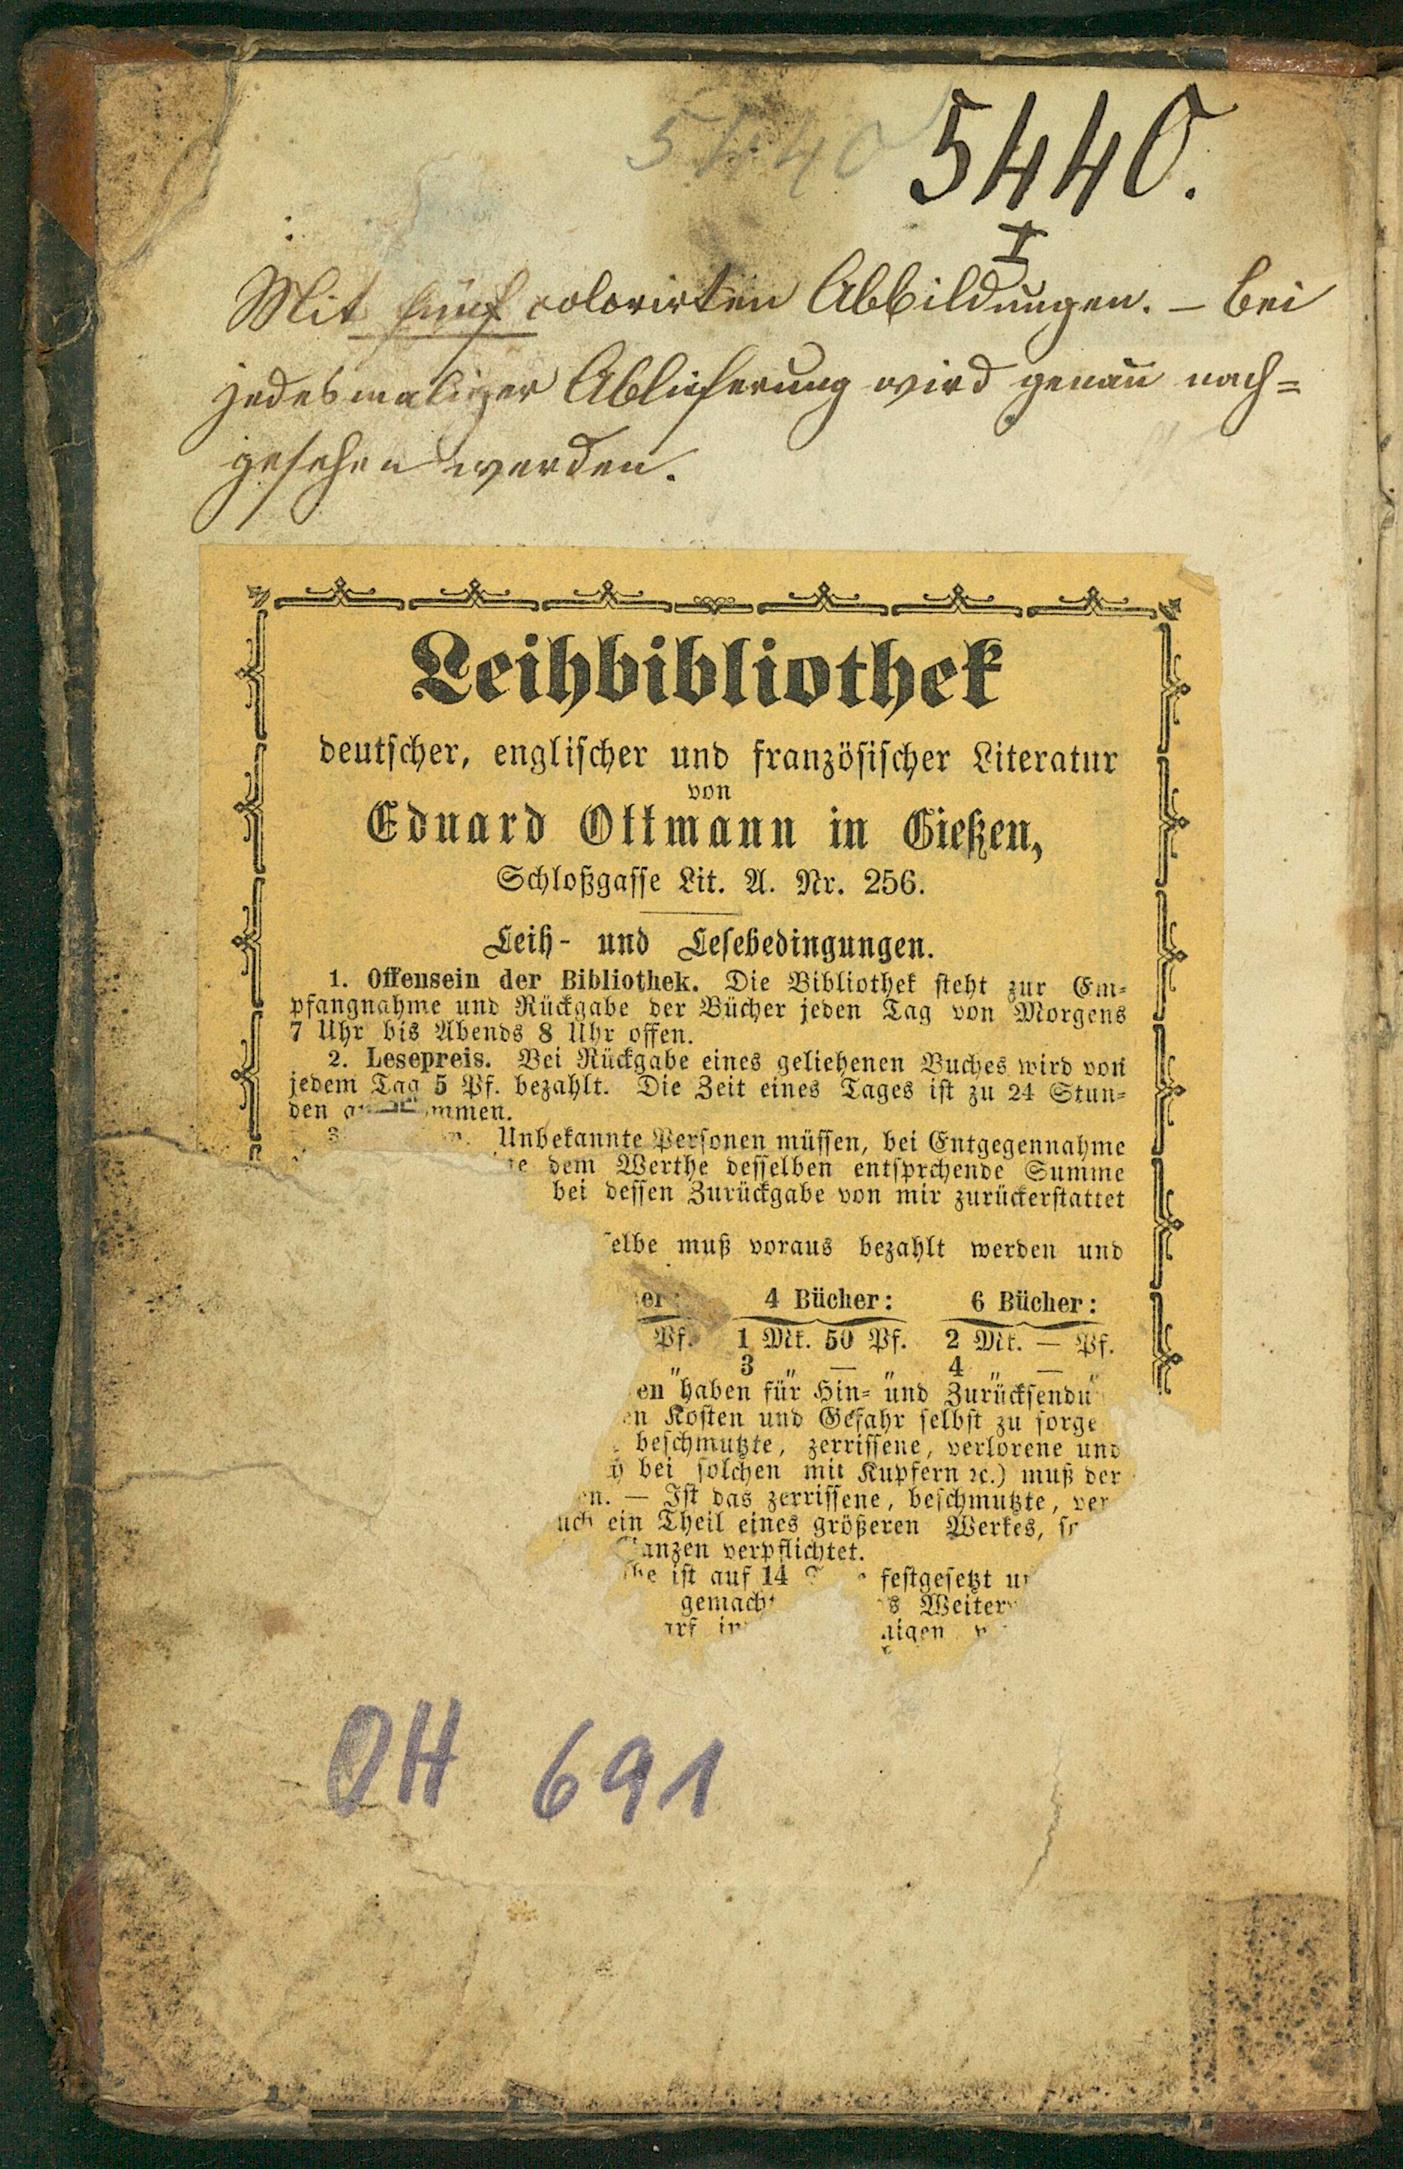 5440 5440.
I
Mit fünf colorirten Abbildungen. – Bei
jedesmaliger Ablieferung wird genau nach=
gesehen werden.
Leihbibliothek
deutscher, englischer und französischer Literatur
von
Eduard Ottmann in Gießen,
Schloßgasse Lit. A. Nr. 256.
Leih- und Lesebedingungen.
1. Offensein der Bibliothek. Die Bibliothek steht zur Em-
pfangnahme und Rückgabe der Bücher jeden Tag von Morgens
7 Uhr bis Abends 8 Uhr offen.
2. Lesepreis. Bei Rückgabe eines geliehenen Buches wird von
jedem Tag 5 Pf. bezahlt. Die Zeit eines Tages ist zu 24 Stun-
den mmen.
3 Unbekannte Personen müssen, bei Entgegennahme
dem Werthe desselben entsprchende Summe
bei dessen Zurückgabe von mir zurückerstattet
elbe muß voraus bezahlt werden und
er: 4 Bücher: 6 Bücher:
Pf. 1 Mk. 50 Pf. 2 Mk. — Pf.
„ 3 „ — „ 4 „ — „
en haben für Hin- und Zurücksendu
en Kosten und Gefahr selbst zu sorge
beschmutzte, zerrissene, verlorene und
bei solchen mit Kupfern ꝛc.) muß der
en. — Ist das zerrissene, beschmutzte, ver
uch ein Theil eines größeren Werkes, so
anzen verpflichtet.
be ist auf 14 festgesetzt u
gemacht s Weiter
arf in nigen v
OH 691